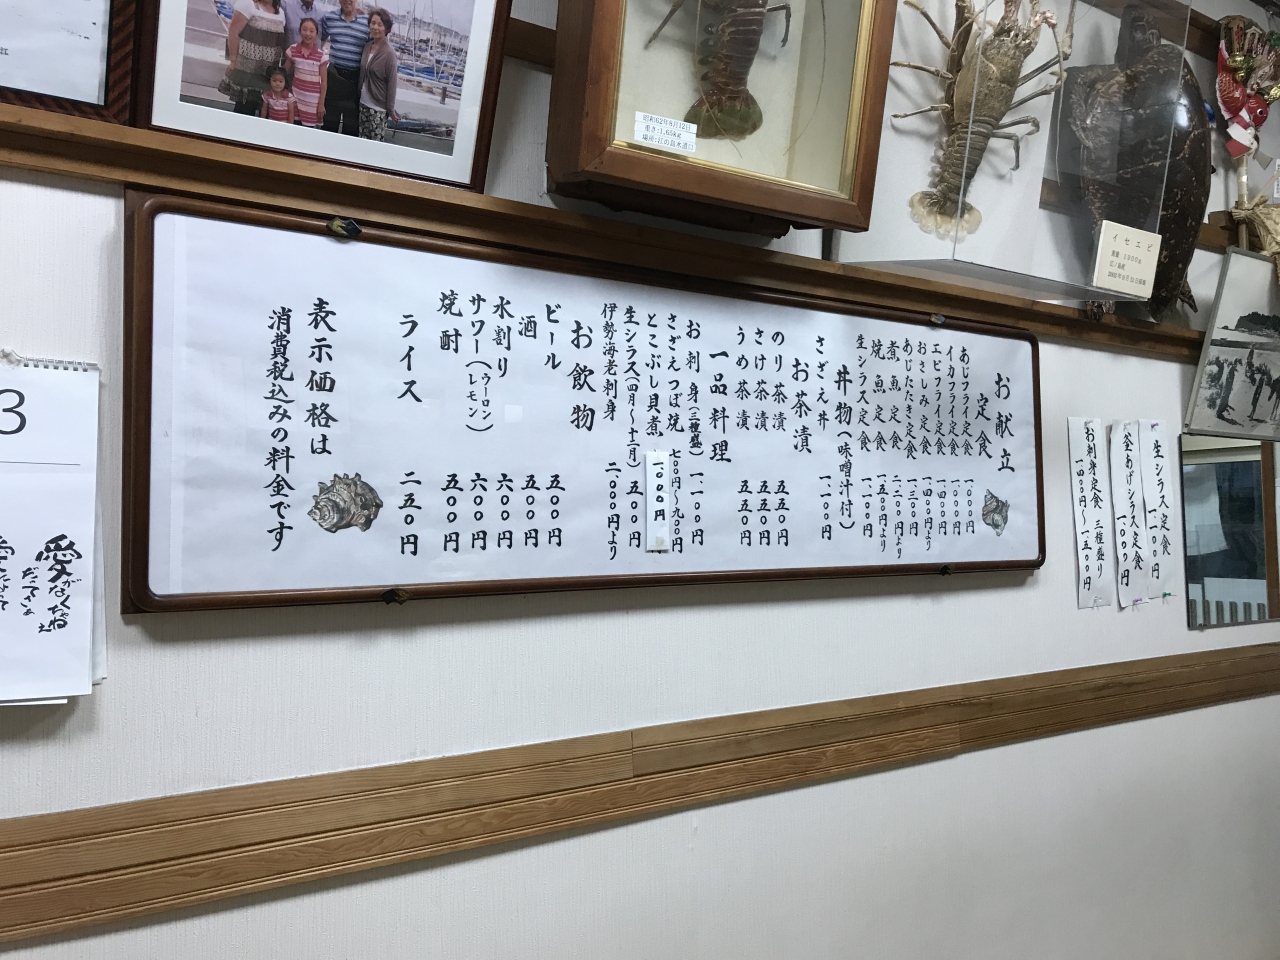 お献立
定食
あじフライ定食 一、一〇〇円
イカフライ定食 一、一〇〇円
エビフライ定食 一、四〇〇円
おさしみ定食 一、四〇〇円より
あじたたき定食 一、三〇〇円
煮魚定食 二、二〇〇円より
焼魚定食 一、五〇〇円より
生シラス定食 一、一〇〇円
丼物(味噌汁付)
さざえ丼 一、一〇〇円
お茶漬
のり茶漬 五五〇円
さけ茶漬 五五〇円
うめ茶漬 五五〇円
一品料理
お刺身(三種盛) 一、一〇〇円
さざえつぼ焼 七〇〇円〜九〇〇円
とこぶし貝煮 一、〇〇〇円
生シラス(四月〜十二月) 五五〇円
伊勢海老刺身 二、〇〇〇円より
お飲物
ビール 五五〇円
酒 五〇〇円
水割り 六〇〇円
サワー(ウーロン レモン) 六〇〇円
焼酎 五〇〇円
ライス 二五〇円
表示価格は
消費税込みの料金です
生シラス定食 一、一〇〇円
釜あげシラス定食 一、〇〇〇円
お刺身定食 三種盛り 一、四〇〇円〜一、五〇〇円
昭和62年8月12日
重さ:1,65kg
場所:江の島水道口
イセエビ
3
愛
がなくちゃねぇ
だってさぁ